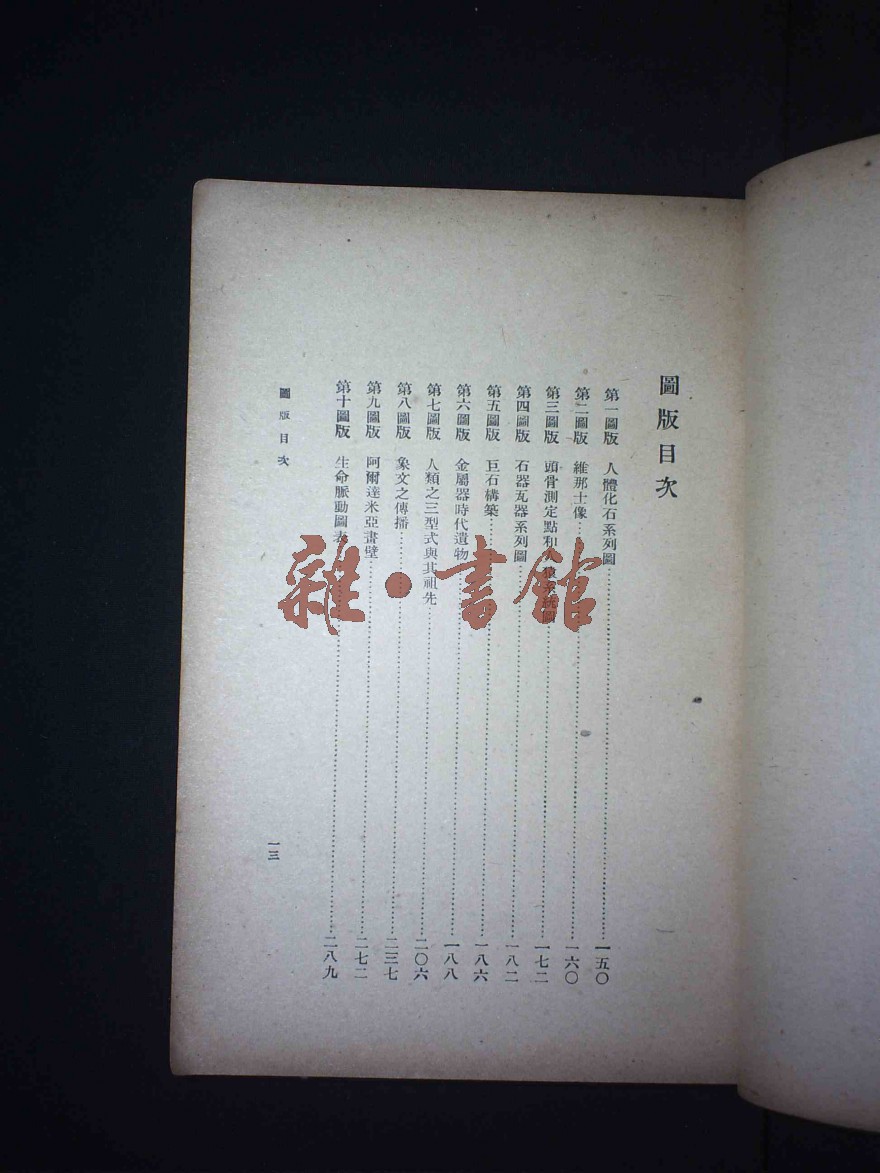 圖版目次
第一圖版 人體化石系列圖 一五〇
第二圖版 維那士像 一六〇
第三圖版 頭骨測定點和人 一七二
第四圖版 石器瓦器系列圖 一八二
第五圖版 巨石構築 一八六
第六圖版 金屬器時代遺物 一八八
第七圖版 人類之三型式與其祖先 二〇六
第八圖版 象文之傳播 二三七
第九圖版 阿爾達米亞書壁 二七二
第十圖版 生命脈動圖表 二八九
圖版目次
一三
雜·書館